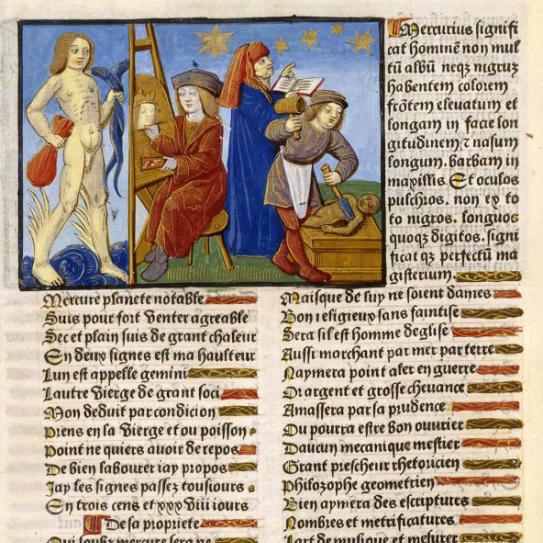 Mercurius signifi
cat hominē non mul
tū albū neqz nigruz
habentem colorem
frōtem eleuatum et
longam in facie lon
gitudinem τ nasum
longum. barbam in
maxillis. Et oculos
pulchros. non ex to
to nigros. longuos
quoqz digitos. signi
ficat qz perfectū ma
gisterium.
Mercure planete notable
Suis pour fort venter agreable
Sec et plain suis de grant chaleur
En deux signes est ma haulteur
Lun est appelle gemini
Lautre vierge de grant soci
Mon deduit par condicion
Prens en la vierge et ou poisson
Point ne quiers auoir de repos
De bien labourer iay propos
Iay les signes passez tousiours
En trois cens et xxviii iours
De sa propriete
Qui soubz mercure sera ne
Maisque de luy ne soient dames
Bon religieux sans faintise
Sera sil est homme deglise
Aussi marchant par mer par terre
Naymera point aler en guerre
Or argent et grosse cheuance
Amassera par sa prudence
Ou pourra estre bon ouurier
Daucun mecanique mestier
Grant prescheur rhetoricien
Philozophe geometrien
Bien aymera des escriptures
Nombres et metrificatures
Lart de musique et mesurer